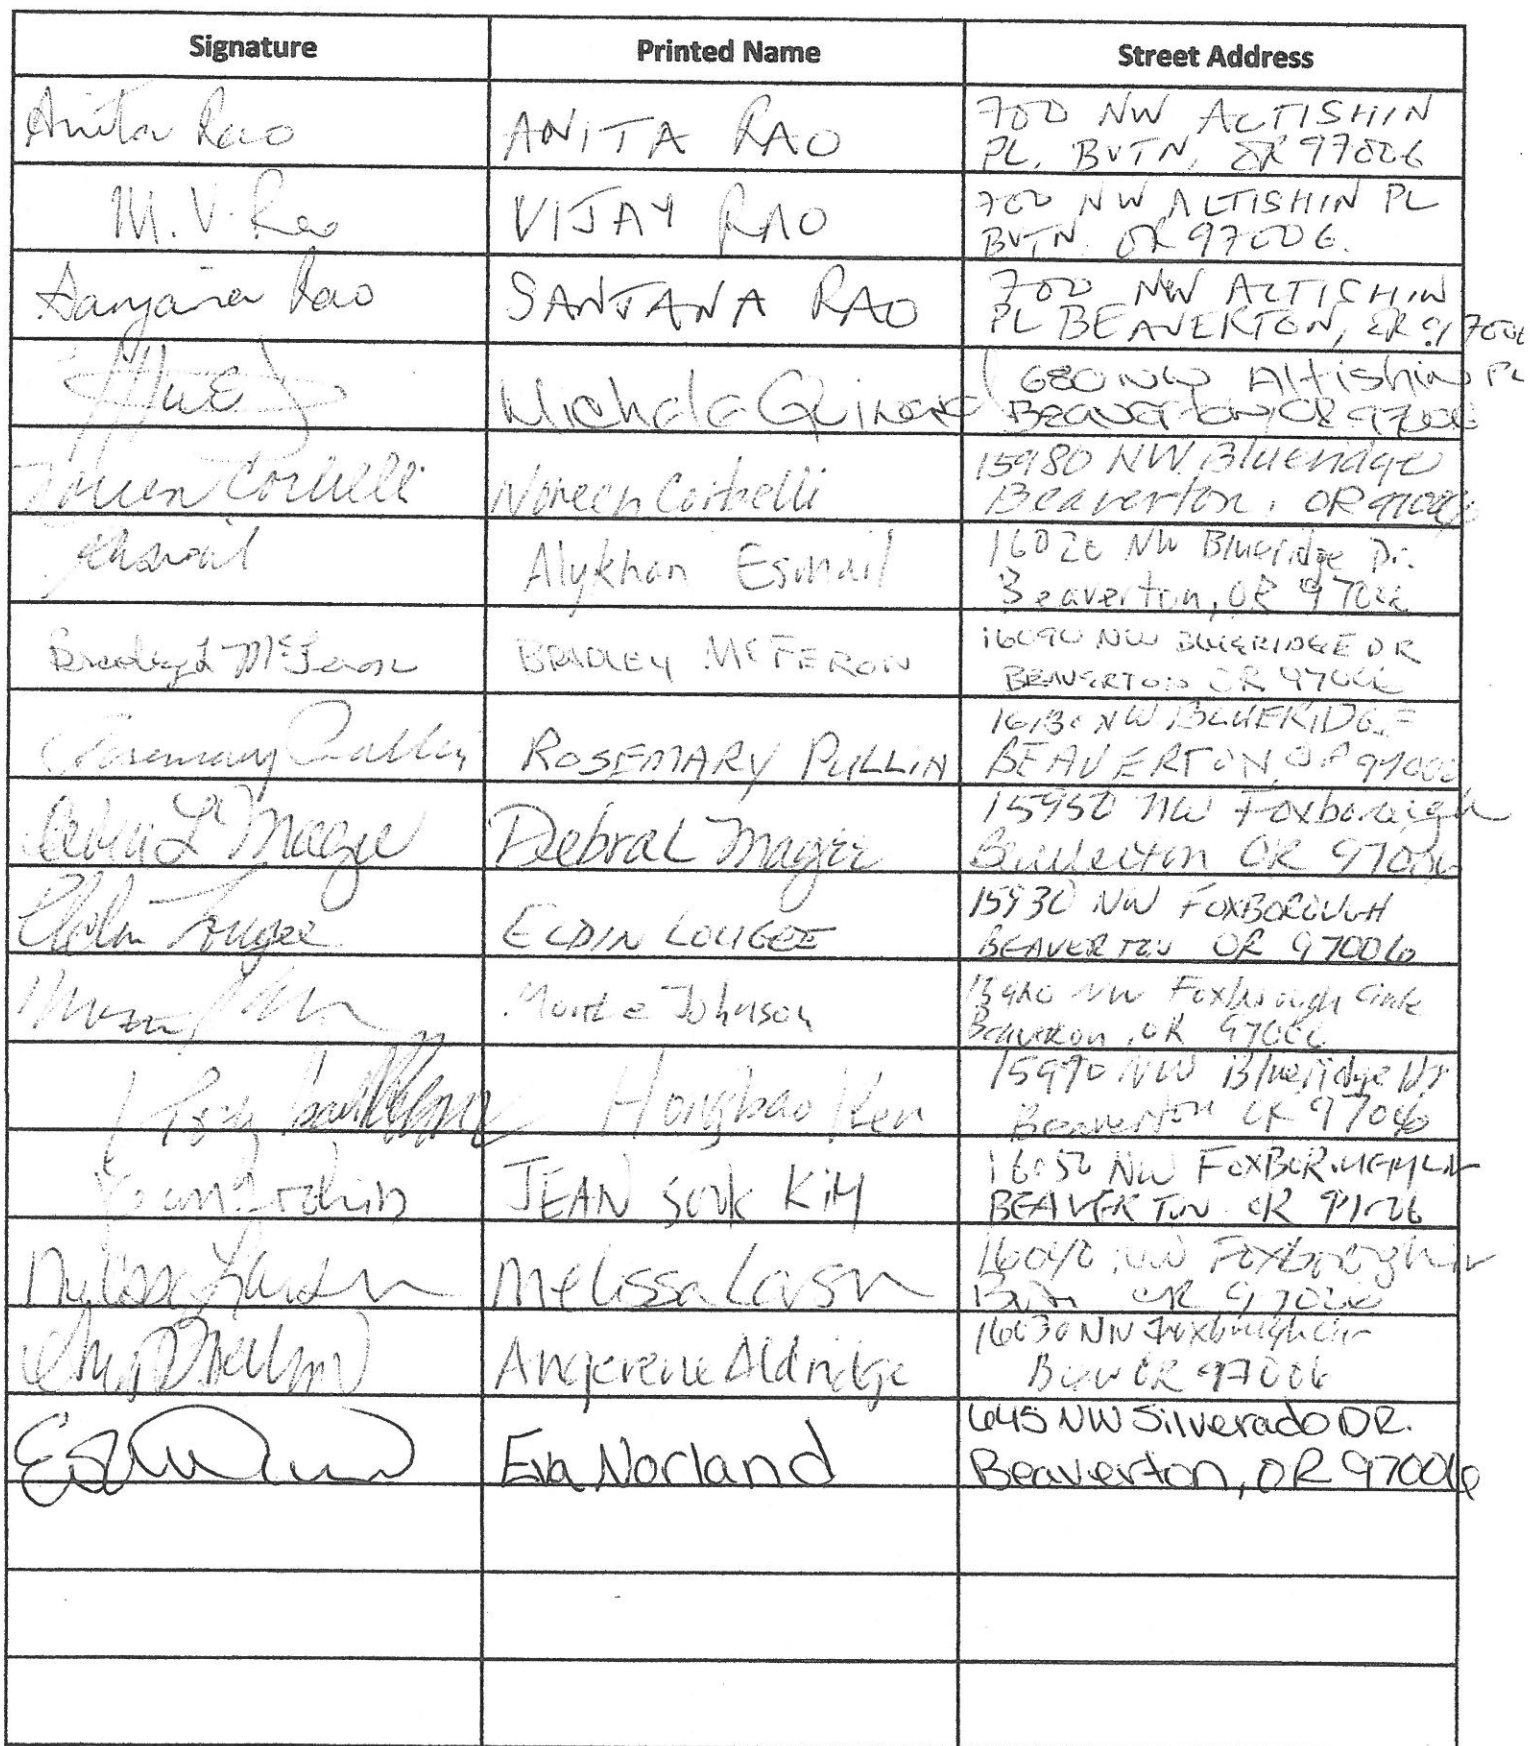 Signature Printed Name Street Address
Anita Rao ANITA RAO 700 NW ALTISHIN
PL. BVTN, OR 97006
M.V. Rao VIJAY RAO 700 NW ALTISHIN PL
BVTN. OR 97006.
Sanjana Rao SANJANA RAO 700 NW ALTISHIN
PL BEAVERTON, OR 97006
680 NW Altishin PL
Beaverton, OR 97006
Noreen Corbelli Noreen Corbelli 15980 NW Blueridge
Beaverton, OR 97006
Alykhan Esmail 16020 NW Blueridge Dr.
Beaverton, OR 97006
Bradley McFeron BRADLEY McFERON 16090 NW BLUERIDGE DR
BEAVERTON OR 97006
Rosemary Pullin ROSEMARY PULLIN 16130 NW BLUERIDGE
BEAVERTON, OR 97006
Debra L Magee Debra L Magee 15950 NW Foxborough
Beaverton OR 97006
Eldin Lougee ELDIN LOUGEE 15930 NW FOXBOROUGH
BEAVERTON OR 97006
Johnson NW Foxborough Circle
Beaverton, OR 97006
Hongbao Ren 15990 NW Blueridge Dr
Beaverton OR 97006
JEAN SOUK KIM 16050 NW
BEAVERTON OR
Melissa Larson Melissa Larson 16040 NW
OR 97006
Angerene Aldridge 16030 NW Foxborough Cir
OR 97006
Eva Norland 645 NW Silverado DR.
Beaverton, OR 97006